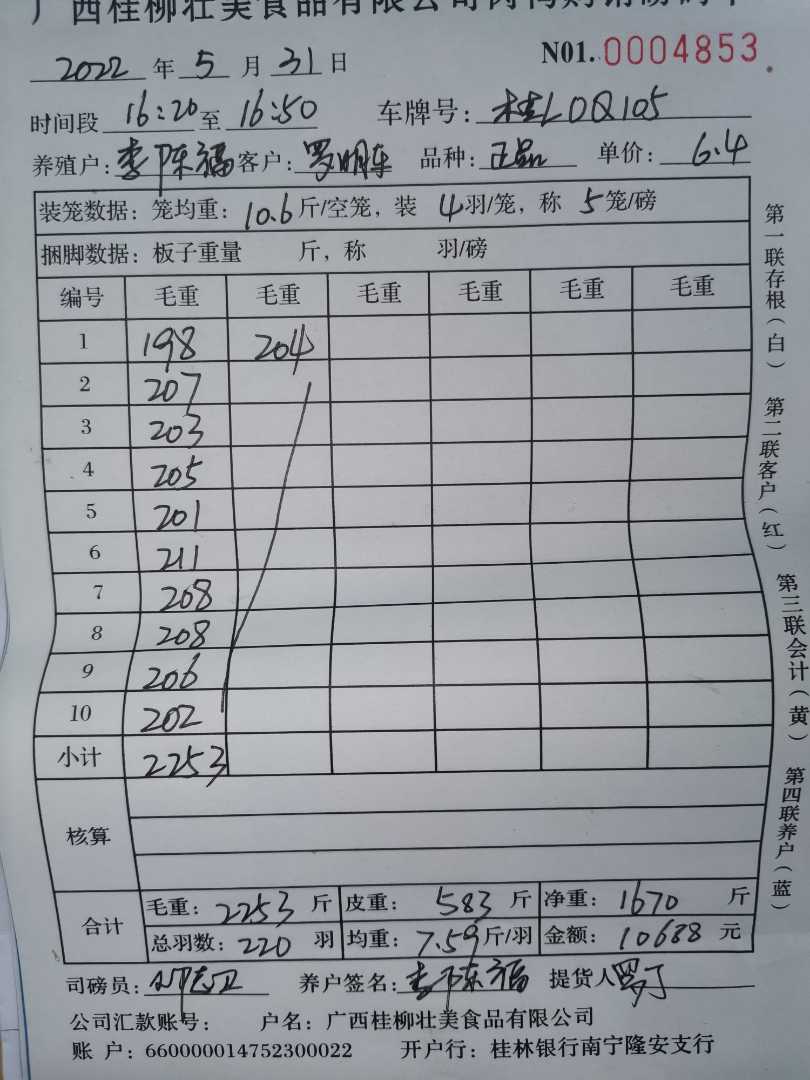 广西桂柳壮美食品有限公司肉鸭购销磅码单
2022 年 5 月 31 日 N01. 0004853
时间段 16:20 至 16:50 车牌号: 桂L0Q105
养殖户: 李陈福 客户: 罗明车 品种: 正品 单价: 6.4
装笼数据: 笼均重: 10.6 斤/空笼, 装 4 羽/笼, 称 5 笼/磅
捆脚数据: 板子重量 斤, 称 羽/磅
编号 毛重 毛重 毛重 毛重 毛重 毛重
1 198 204
2 207
3 203
4 205
5 201
6 211
7 208
8 208
9 206
10 202
小计 2253
核算
合计 毛重: 2253 斤 皮重: 583 斤 净重: 1670 斤
总羽数: 220 羽 均重: 7.59 斤/羽 金额: 10688 元
司磅员: 养户签名: 李陈福 提货人
公司汇款账号: 户名: 广西桂柳壮美食品有限公司
账 户: 660000014752300022 开户行: 桂林银行南宁隆安支行
第一联存根(白) 第二联客户(红) 第三联会计(黄) 第四联养户(蓝)